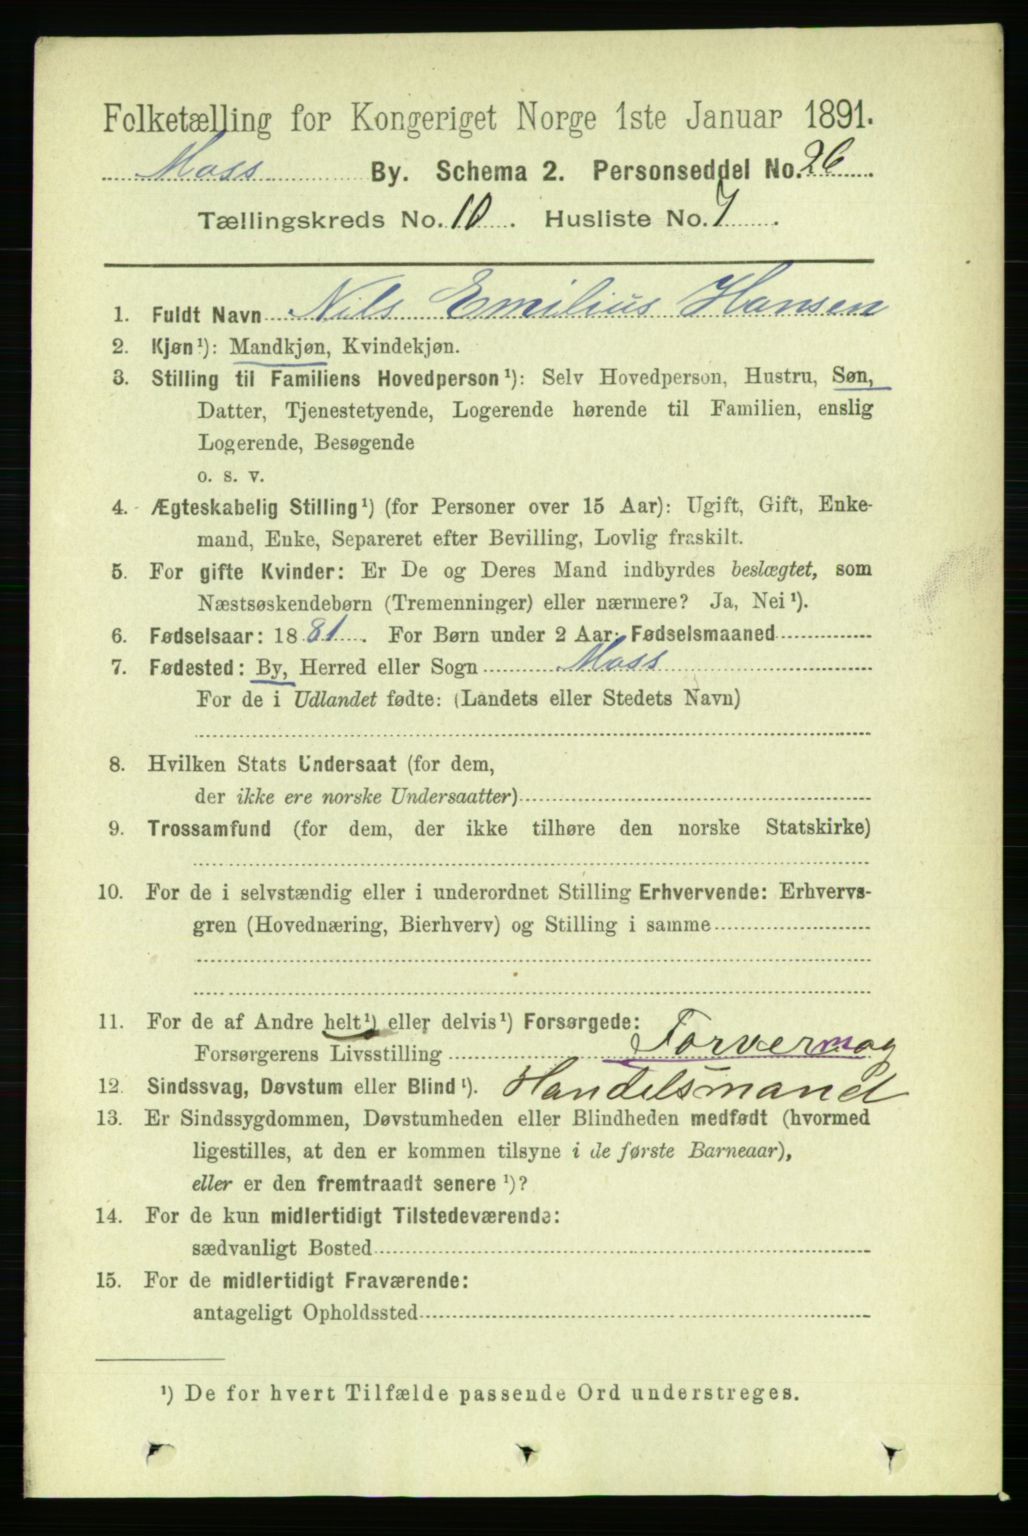 Folketælling for Kongeriget Norge 1ste Januar 1891.
Moss By. Schema 2. Personseddel No. 26
Tællingskreds No. 10. Husliste No. 7.
1. Fuldt Navn Nils Emilius Hansen
2. Kjøn¹): Mandkjøn, Kvindekjøn.
3. Stilling til Familiens Hovedperson¹): Selv Hovedperson, Hustru, Søn,
Datter, Tjenestetyende, Logerende hørende til Familien, enslig
Logerende, Besøgende
o. s. v.
4. Ægteskabelig Stilling¹) (for Personer over 15 Aar): Ugift, Gift, Enke-
mand, Enke, Separeret efter Bevilling, Lovlig fraskilt.
5. For gifte Kvinder: Er De og Deres Mand indbyrdes beslægtet, som
Næstsøskendebørn (Tremenninger) eller nærmere? Ja, Nei¹).
6. Fødselsaar: 1881. For Børn under 2 Aar: Fødselsmaaned
7. Fødested: By, Herred eller Sogn Moss
For de i Udlandet fødte: (Landets eller Stedets Navn)
8. Hvilken Stats Undersaat (for dem,
der ikke ere norske Undersaatter)
9. Trossamfund (for dem, der ikke tilhøre den norske Statskirke)
10. For de i selvstændig eller i underordnet Stilling Erhvervende: Erhvervs-
gren (Hovednæring, Bierhverv) og Stilling i samme
11. For de af Andre helt¹) eller delvis¹) Forsørgede:
Forsørgerens Livsstilling Farver og
12. Sindssvag, Døvstum eller Blind¹). Handelsmand
13. Er Sindssygdommen, Døvstumheden eller Blindheden medfødt (hvormed
ligestilles, at den er kommen tilsyne i de første Barneaar),
eller er den fremtraadt senere¹)?
14. For de kun midlertidigt Tilstedeværende:
sædvanligt Bosted
15. For de midlertidigt Fraværende:
antageligt Opholdssted
¹) De for hvert Tilfælde passende Ord understreges.